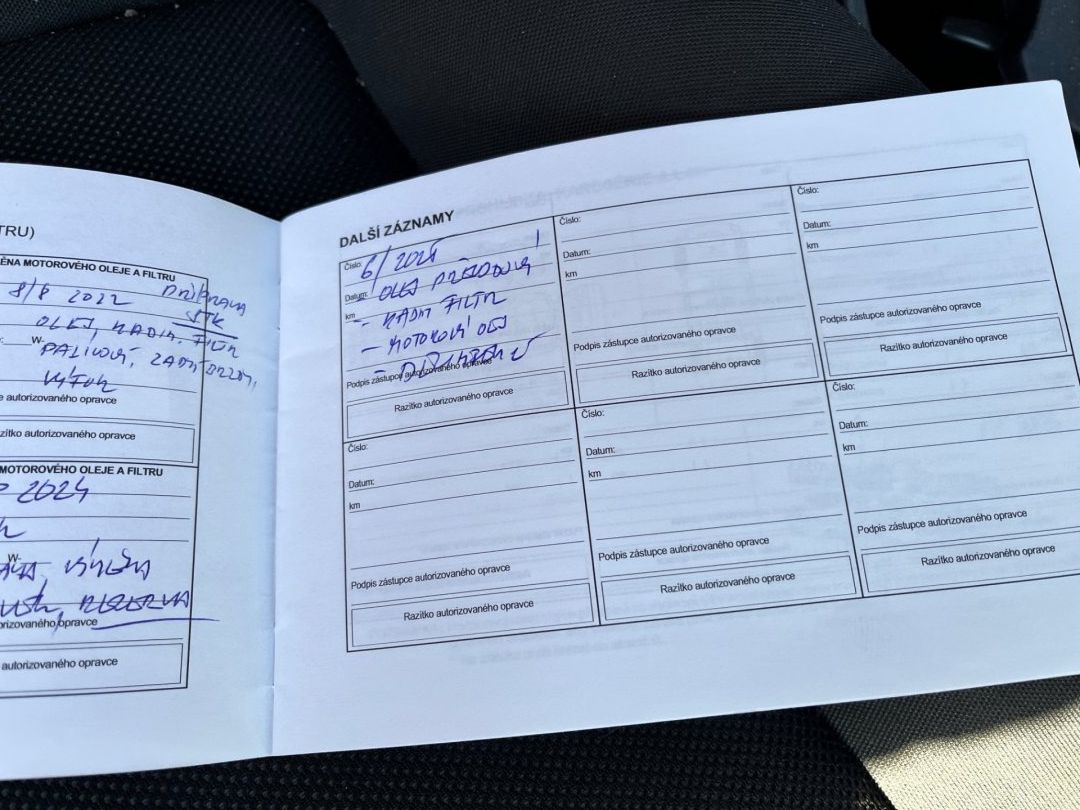 TRU)
ĚNA MOTOROVÉHO OLEJE A FILTRU
8/8 2022 PŘÍPRAVA
STK
OLEJ, KABIN. FILTR
W-
PALIVOVÝ, ZADNÍ BRZDY,
VÝFUK
e autorizovaného opravce
zítko autorizovaného opravce
MOTOROVÉHO OLEJE A FILTRU
2024
W-
VÝMĚNA
REZERVA
orizovaného opravce
autorizovaného opravce
DALŠÍ ZÁZNAMY
Číslo: 6/2025
Datum: - OLEJ PŘEVODOVÝ
km - KABIN FILTR
- MOTOROVÝ OLEJ
-
Podpis zástupce autorizovaného opravce
Razítko autorizovaného opravce
Číslo:
Datum:
km
Podpis zástupce autorizovaného opravce
Razítko autorizovaného opravce
Číslo:
Datum:
km
Podpis zástupce autorizovaného opravce
Razítko autorizovaného opravce
Číslo:
Datum:
km
Podpis zástupce autorizovaného opravce
Razítko autorizovaného opravce
Číslo:
Datum:
km
Podpis zástupce autorizovaného opravce
Razítko autorizovaného opravce
Číslo:
Datum:
km
Podpis zástupce autorizovaného opravce
Razítko autorizovaného opravce